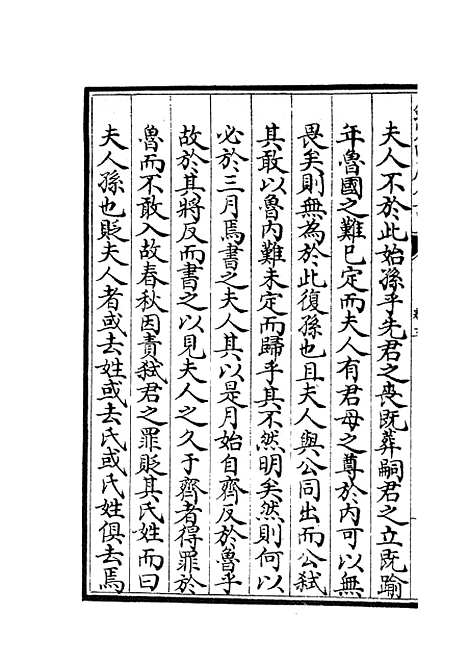 夫人不於此始孫乎先君之喪既葬嗣君之立既踰
年魯國之難已定而夫人有君母之尊於内可以無
畏矣則無為於此復孫也且夫人與公同出而公弑
其敢以魯内難未定而歸乎其不然明矣然則何以
必於三月焉書之夫人其以是月始自齊反於魯乎
故於其將反而書之以見夫人之久于齊者得罪於
魯而不敢入故春秋因責弑君之罪貶其氏姓而曰
夫人孫也貶夫人者或去姓或去氏或氏姓俱去焉